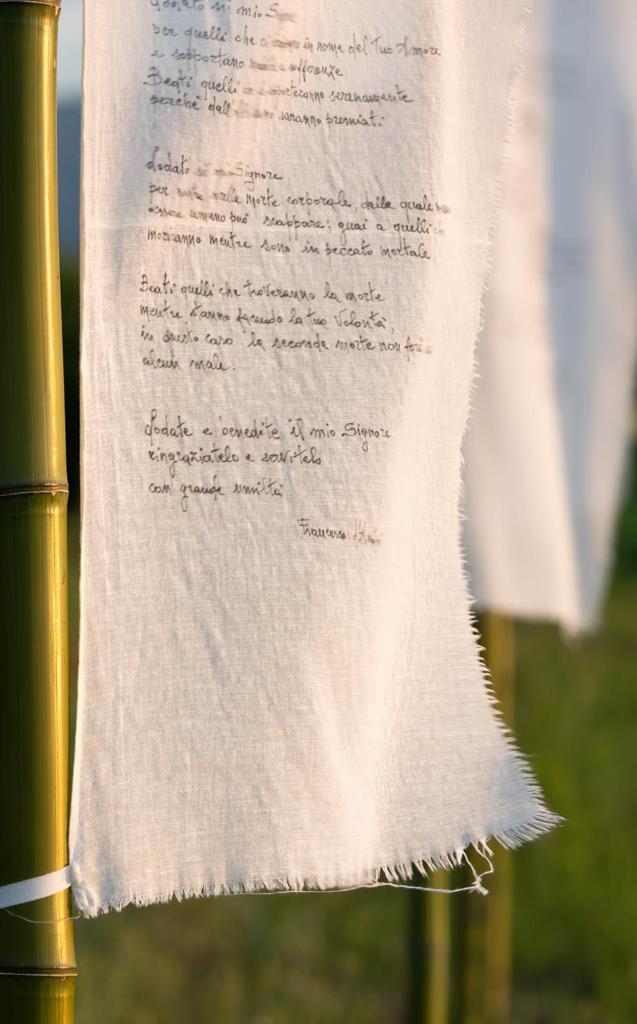 Lodato si mio
per quelli che in nome del Tuo Amore
e sopportano sofferenze
Beati quelli sopporteranno serenamente
perché dall' saranno premiati.
Lodato mio Signore
per nostra morte corporale, dalla quale
essere umano può scappare; guai a quelli
morranno mentre sono in peccato mortale
Beati quelli che troveranno la morte
mentre stanno facendo la tua Volontà,
in questo caso la seconda morte non farà
alcun male.
Lodate e benedite il mio Signore
ringraziatelo e servitelo
con grande umiltà
Francesco